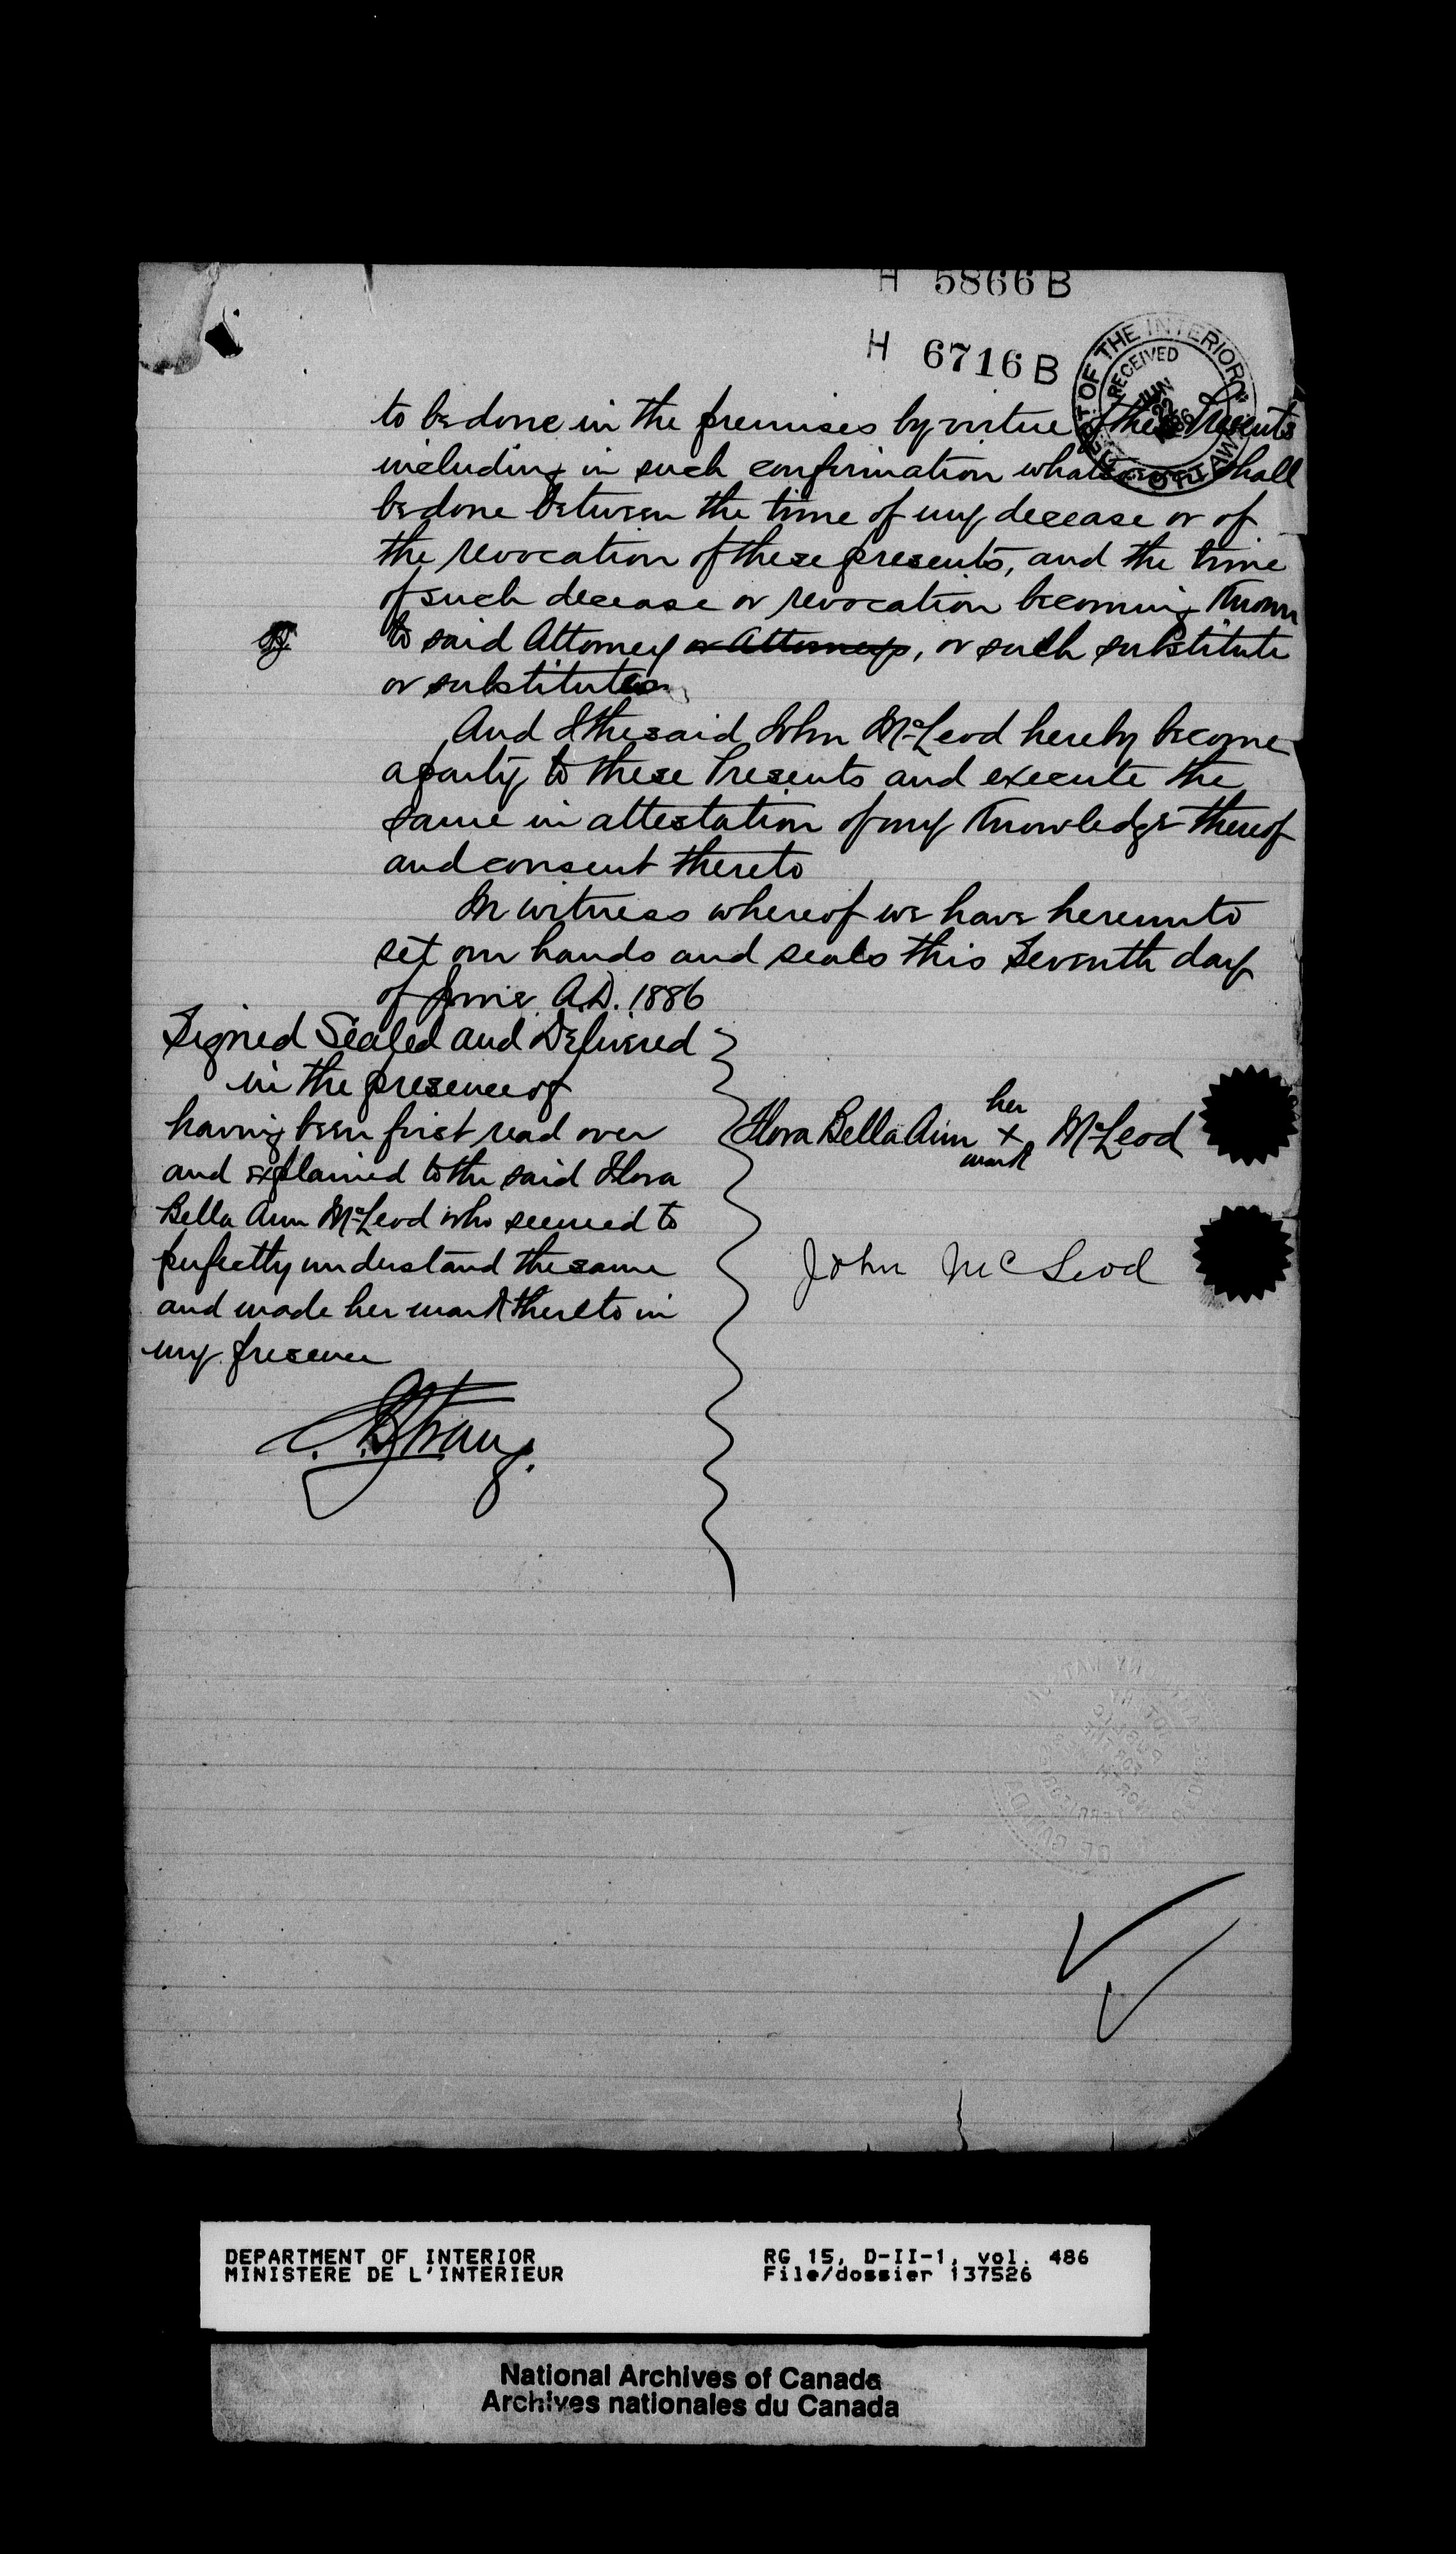 H 5866 B
H 6716 B
DEPT OF THE INTERIOR OTTAWA
RECEIVED
JUN
22
1886
to be done in the premises by virtue of these Presents
including in such confirmation whatsoever shall
be done between the time of my decease or of
the revocation of these presents, and the time
of such decease or revocation becoming known
to said Attorney or Attorneys, or such substitute
or substitutes
And I the said John McLeod hereby become
a party to these Presents and execute the
same in attestation of my knowledge thereof
and consent thereto
In witness whereof we have hereunto
set our hands and seals this Seventh day
of June A.D. 1886
Signed Sealed and Delivered
in the presence of
having been first read over
and explained to the said Flora
Bella Ann McLeod who seemed to
perfectly understand the same
and made her mark thereto in
my presence
her
Flora Bella Ann x McLeod
mark
John McLeod
DEPARTMENT OF INTERIOR
MINISTERE DE L'INTERIEUR
RG 15, D-II-1, vol. 486
File/dossier 137526
National Archives of Canada
Archives nationales du Canada